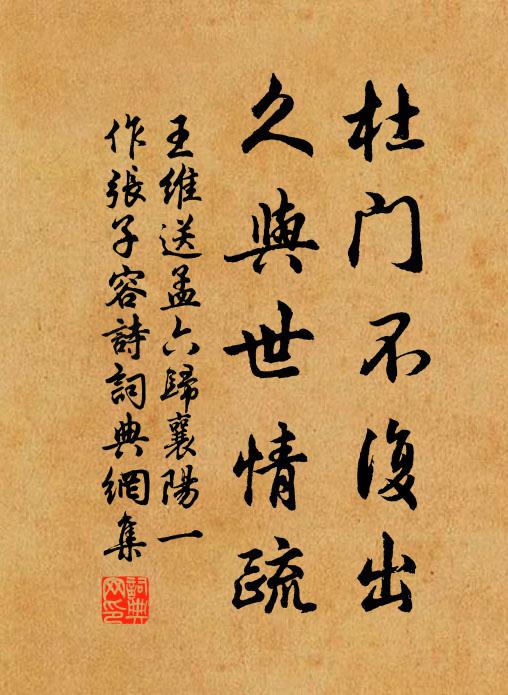 杜门不復出
久與世情疏
王維送孟六歸襄陽一
作張子容詩詞典網集
詞典
网印